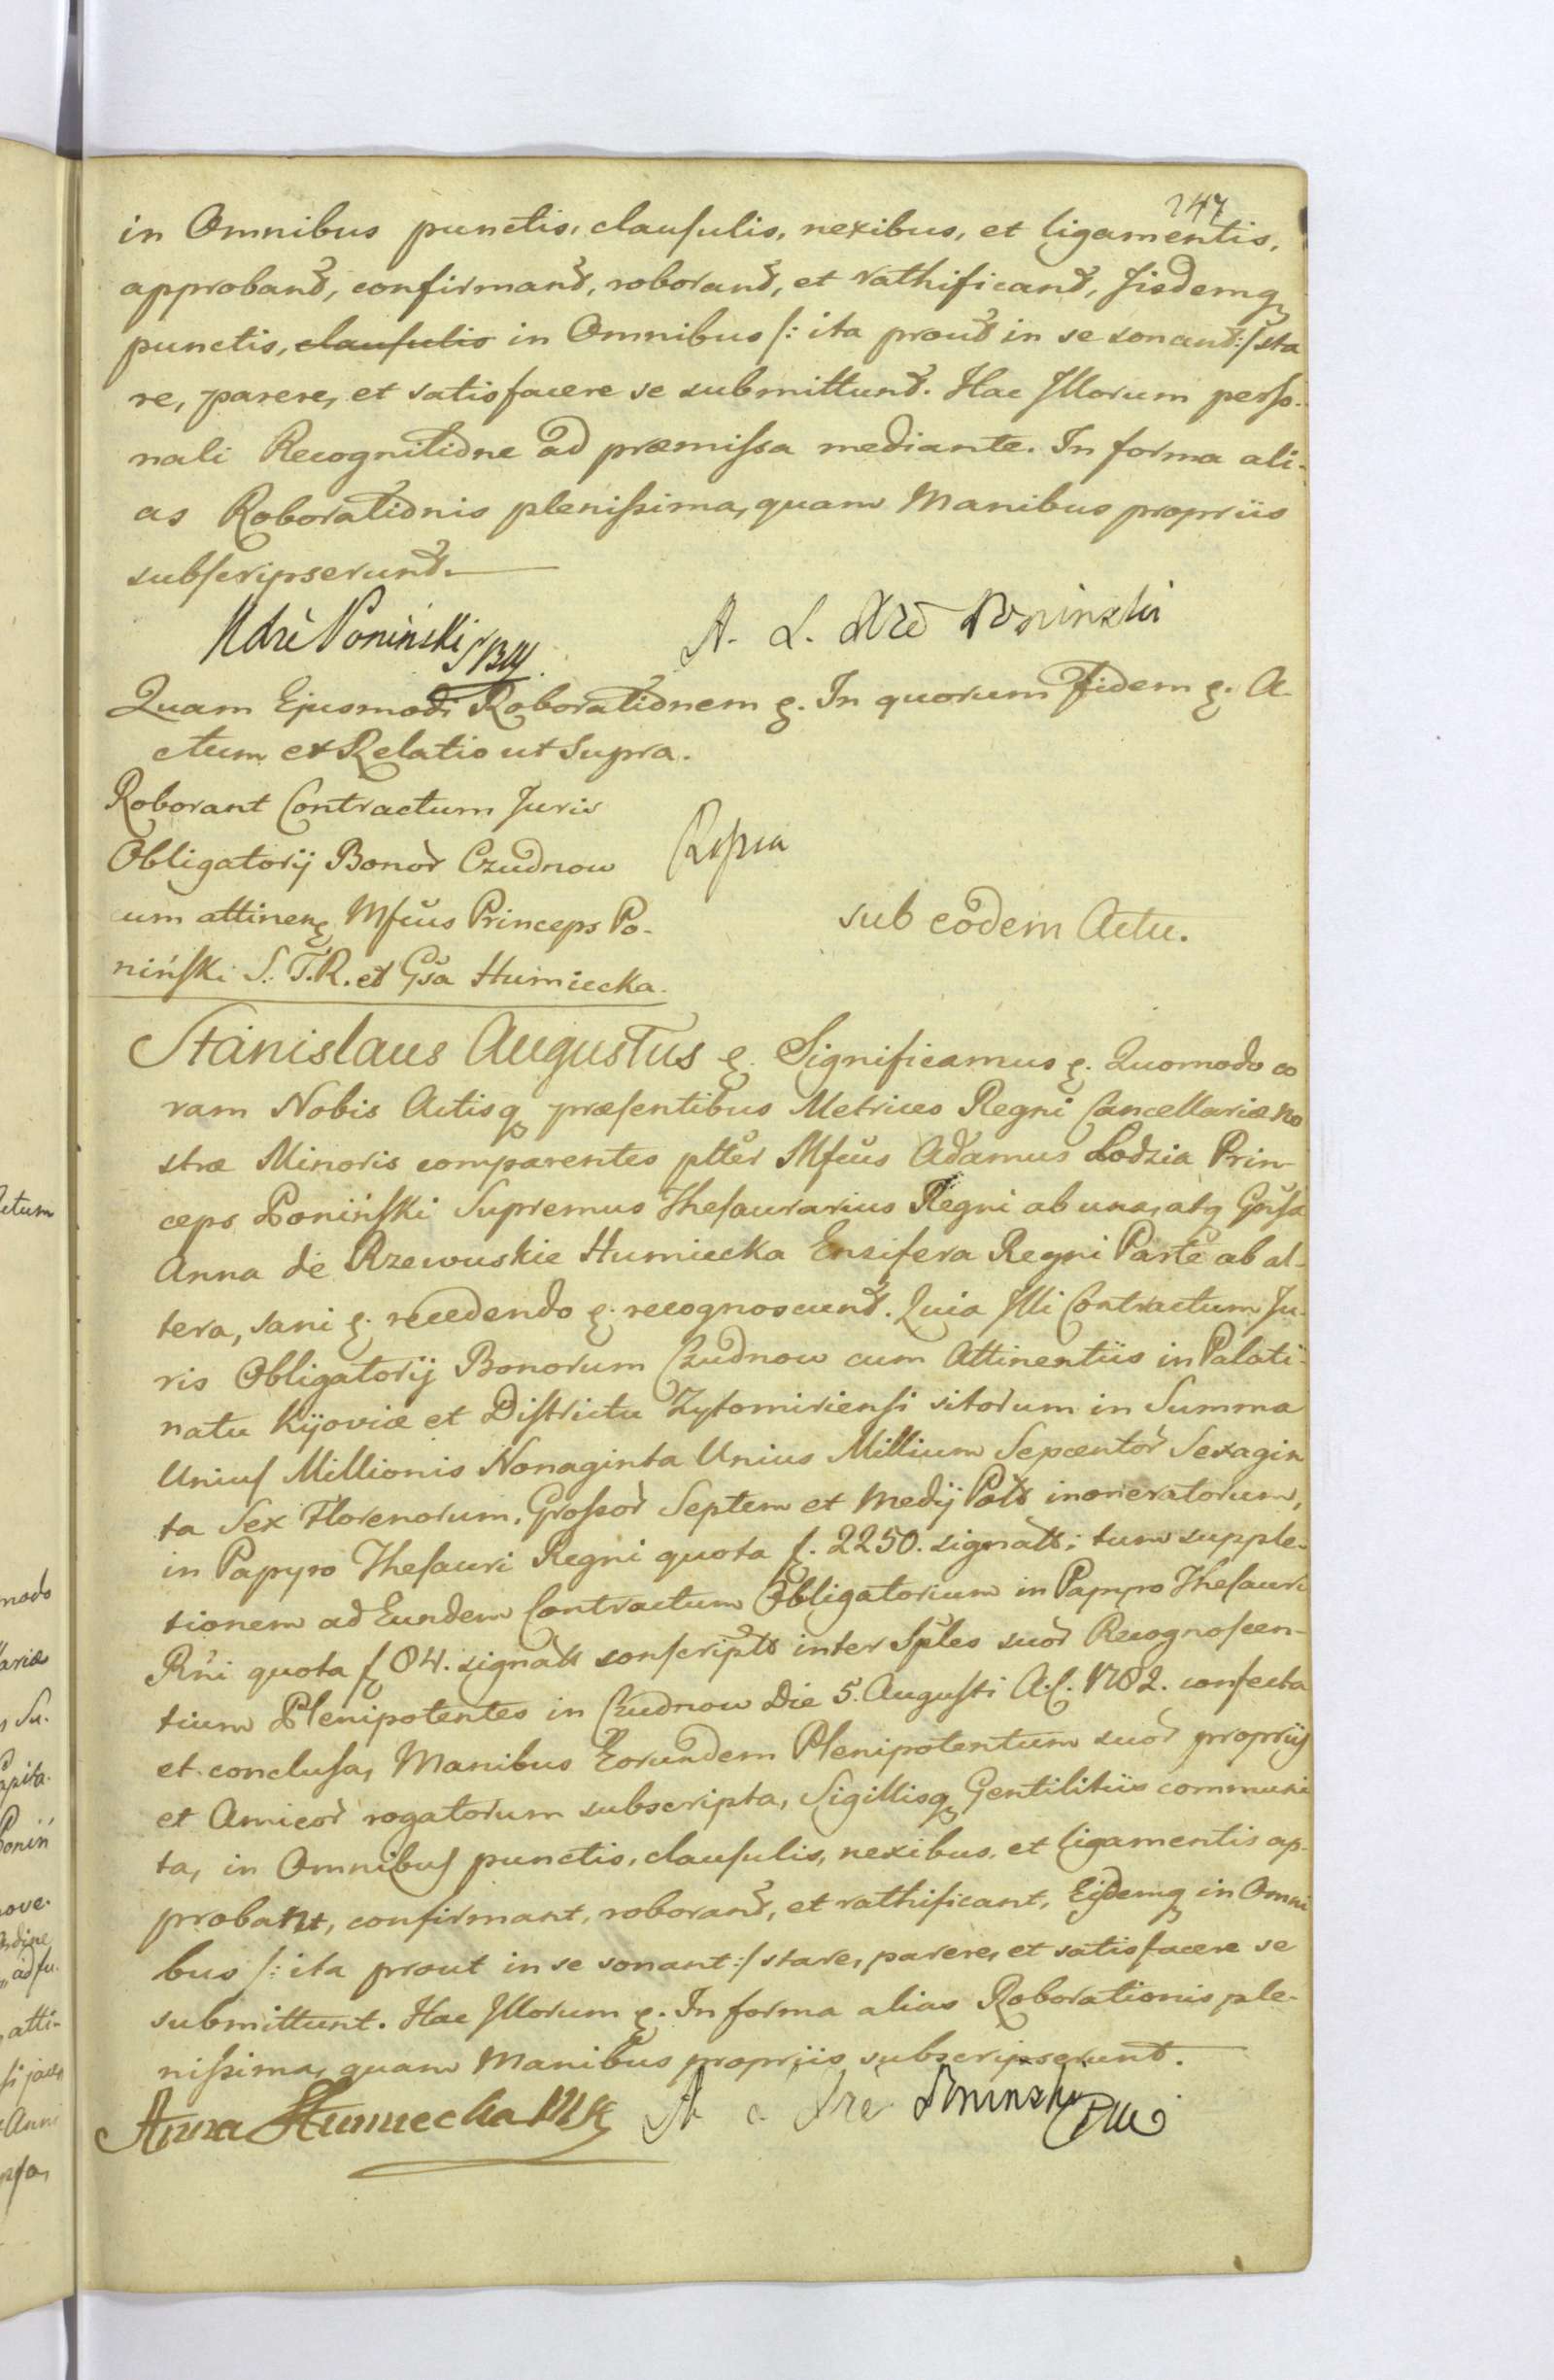 247
in Omnibus punctis, clausulis, nexibus, et ligamentis,
approbant, confirmant, roborant, et rathificant, Jisdemq
punctis, clausulis in Omnibus /: ita prout in se sonant :/ sta
re, parere, et satisfacere se submittunt. Hac Illorum perso-
nali Recognitione ad præmissa mediante. In forma ali-
as Roborationis plenissima, quam Manibus propriis
subscripserunt.
Poniński
A. L. Xże Poninzki
Quam Ejusmodi Roborationem &. In quorum Fidem &. A-
ctum et Relatio ut Supra.
Roborant Contractum Juris
Obligatorij Bonor Czudnow
cum attinen Mfcus Princeps Po-
niński S. T. R. et Gsa Humiecka.
sub eodem Actu.
Stanislaus Augustus &. Significamus &. Quomodo co
ram Nobis Actisq præsentibus Metrices Regni Cancellariæ no
stræ Minoris comparentes plter Mfcus Adamus Lodzia Prin-
ceps Poniński Supremus Thesaurarius Regni ab una, atq Gnsa
Anna de Rzewuskie Humiecka Ensifera Regni Parte ab al-
tera, sani &. recedendo &. recognoscunt. Quia Illi Contractum Ju-
ris Obligatorij Bonorum Czudnow cum Attinentiis in Palati-
natu Kijoviæ et Districtu Zytomiriensi sitorum in Summa
Unius Millionis Nonaginta Unius Millium Sepcentor Sexagin
ta Sex Florenorum, Grossor Septem et Medij Polt inoneratorum,
in Papyro Thesauri Regni quota f. 2250. signatt; tum supple-
tionem ad Eundem Contractum Obligatorium in Papyro Thesauri
Rni quota f 84. signatt conscriptt inter Sples suor Recognoscen-
tium Plenipotentes in Czudnow Die 5. Augusti A. C. 1782. confecta
et conclusa, Manibus Eorundem Plenipotentum suor proprijs
et Amicor rogatorum subscripta, Sigillisq Gentilitiis communi
ta, in Omnibus punctis, clausulis, nexibus, et ligamentis ap-
probant, confirmant, roborant, et rathificant, Eisdemq in Omni
bus /: ita prout in se sonant :/ stare, parere, et satisfacere se
submittunt. Hac Illorum &. In forma alias Roborationis ple-
nissima, quam Manibus propriis subscripserunt.
Anna Humiecka MK
A Xże Poninzki